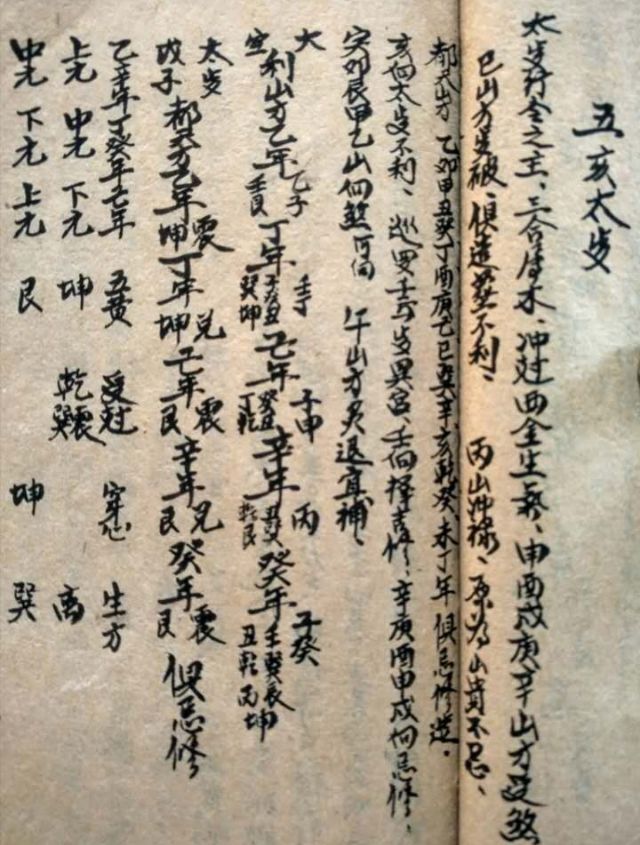 五亥太岁
太岁行令之主、三合属木、冲对西金生祭、申酉戌庚辛山方受煞
巳山方岁破、俱造葬不利、丙山冲禄、原为山贵不忌、
都天山方乙卯甲丑癸丁酉庚已巳巽辛亥乾癸、未丁年俱忌修造、
亥向太岁不利、巡罗壬与岁異宫、壬向择吉修、辛庚酉申戌向忌修、
寅卯艮甲乙山向煞可向午山方炙退宜補、
大利山方乙年乙子丁年壬子己年子申辛年丙癸年子癸
空壬艮巽坤丁乾乾艮丑乾丙坤
太岁震兑震兑震
戊子都天方乙年坤丁年坤己年艮辛年艮癸年艮俱忌修
乙辛年丁癸年己年五黄受对穿心生方
上元中元下元坤乾震巽离
中元下元上元艮坤巽